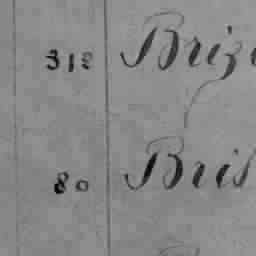 312 Brizi
80 Bris